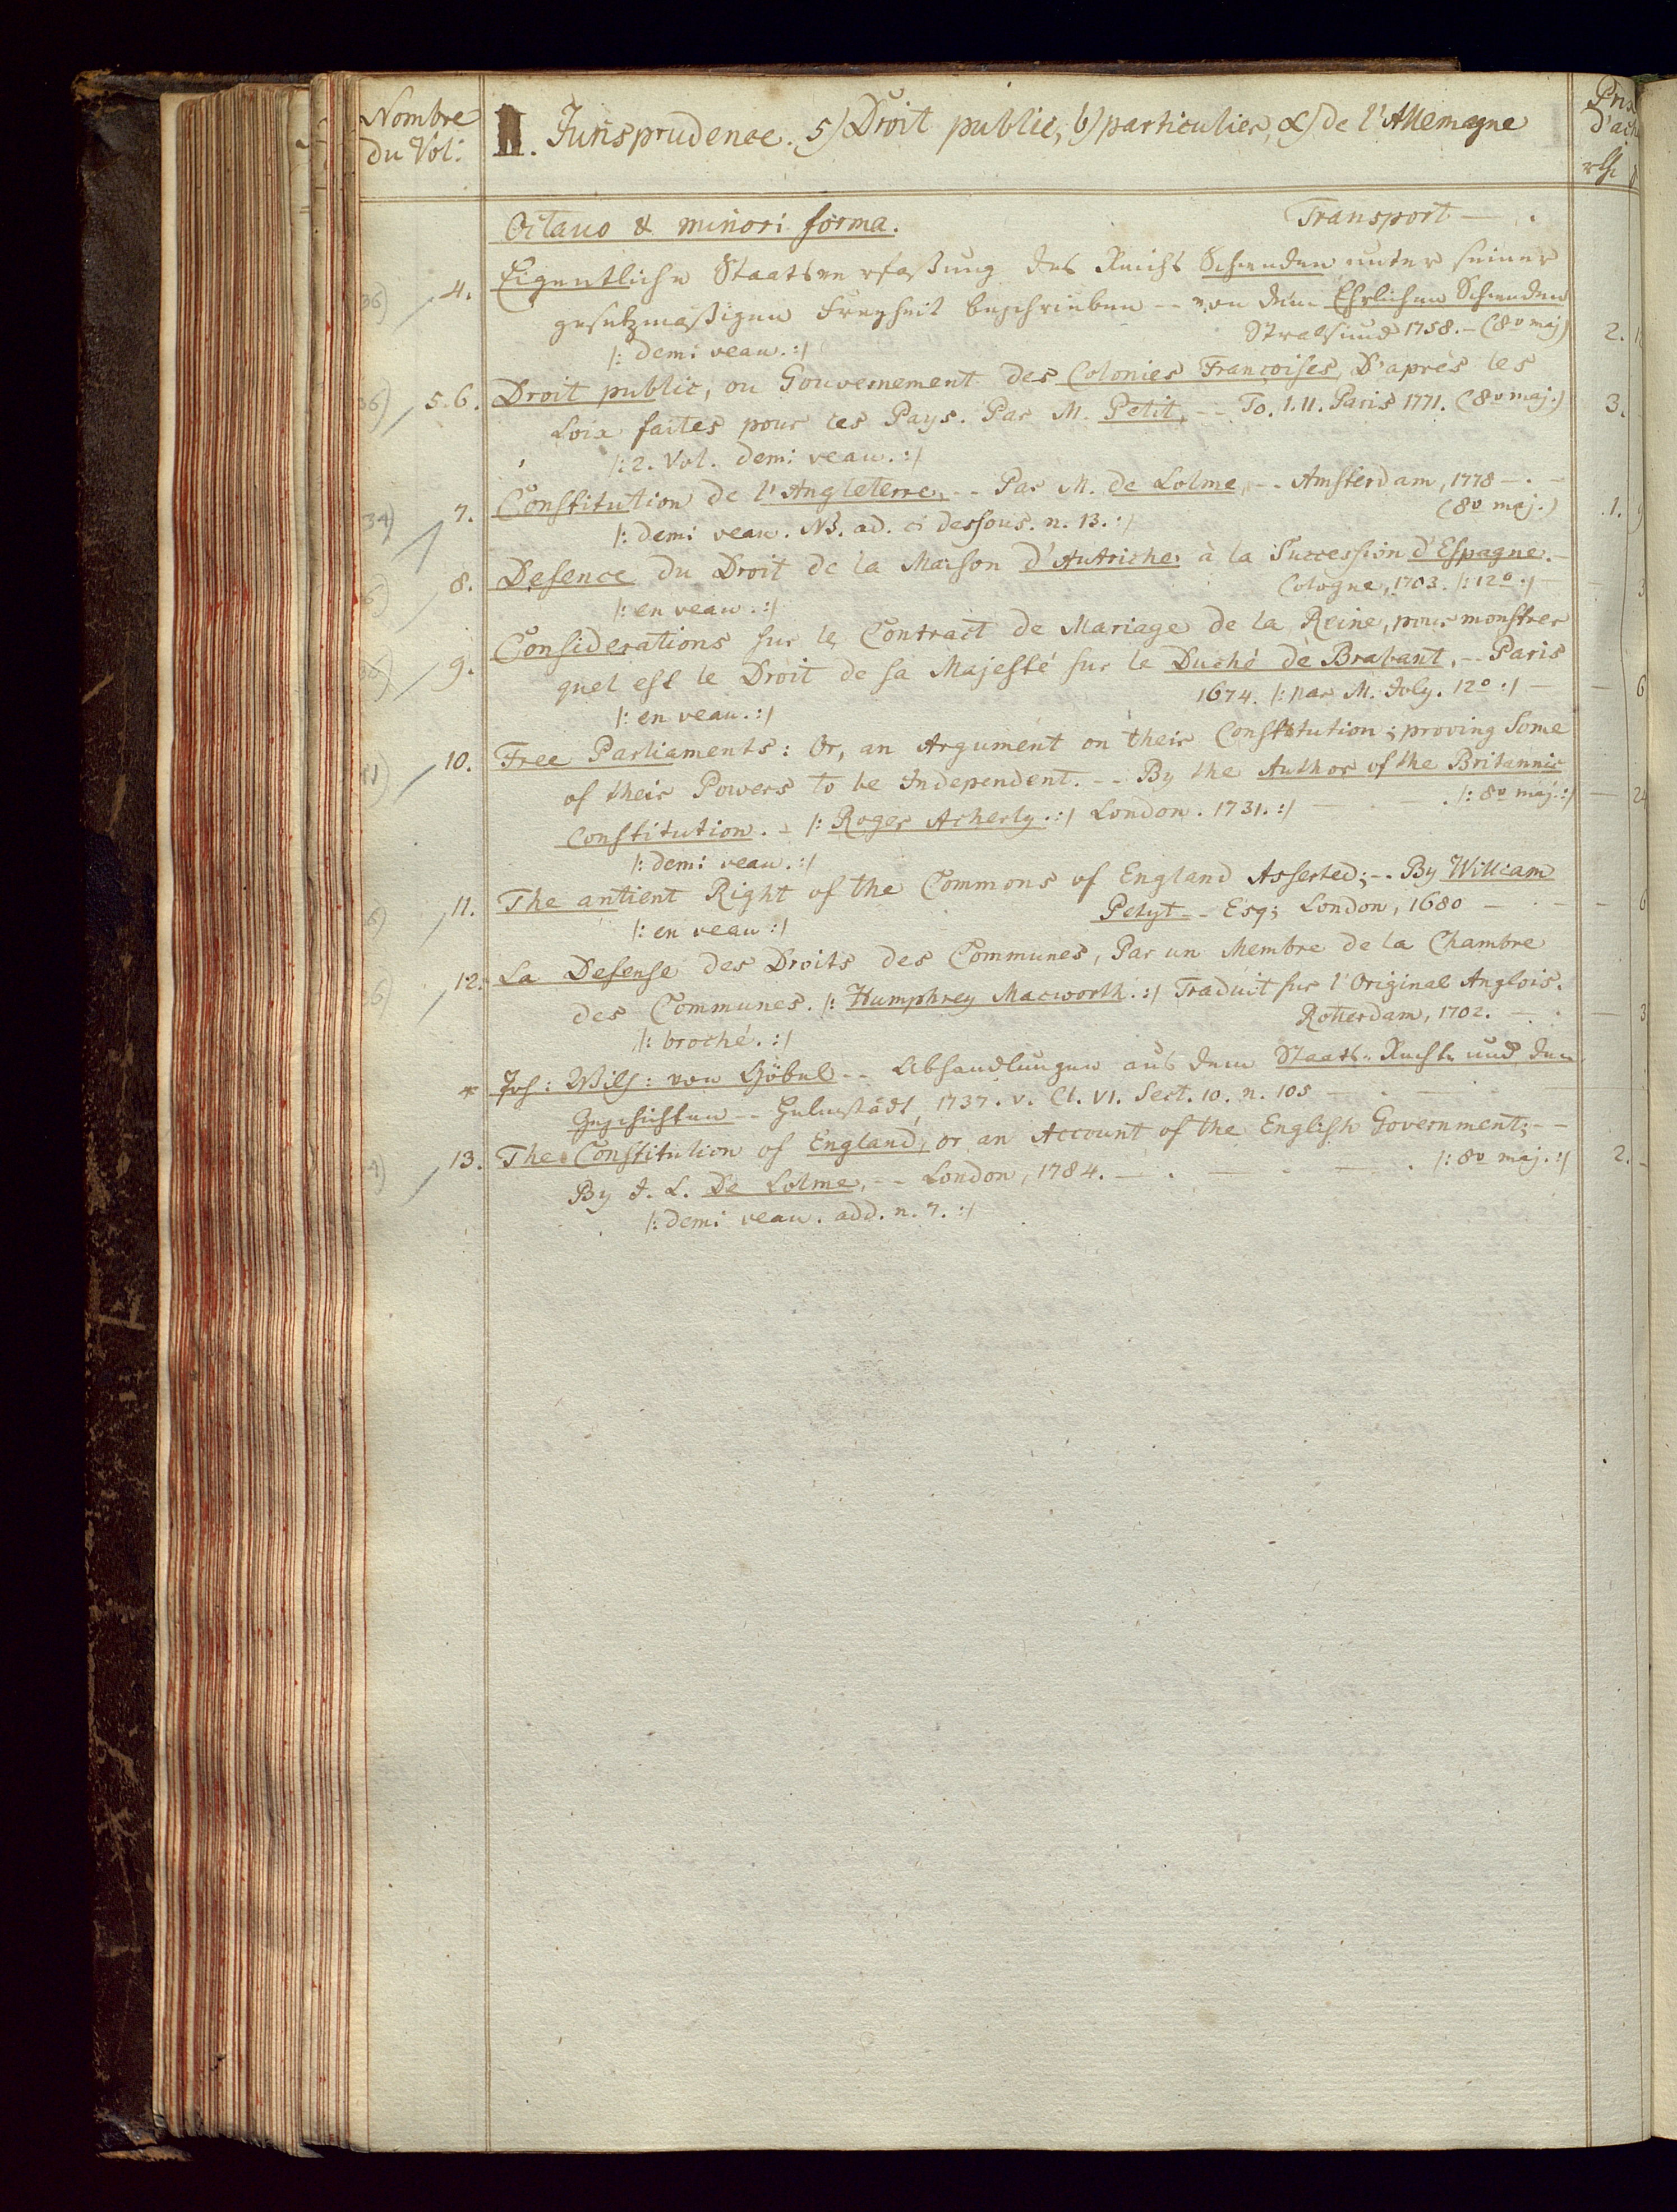 Nombre
du Vol:
II. Jurisprudence. 5) Droit public, b) particulier, α) de l'Allemagne
Prix
d'ach
rth
Octavo & minori forma. Transport — .
36) 4. Eigentliche Staatsverfaßung des Reichs Schweden unter seiner
gesetzmaßigen Freyheit beschrieben -- von dem Ehrlichen Schweden
/: demi veau. :/ Stralsund 1758. – (8º maj) 2.
36) 5.6. Droit public, ou Gouvernement des Colonies Françoises, D'après les
Loix faites pour ces Pays. Par M. Petit, -- To. I.II. Paris 1771. (8º maj.) 3.
/: 2. Vol. demi veau. :/
34) 7. Constitution de l'Angleterre, -- Par M. de Lolme, -- Amsterdam, 1778 – . –
/: demi veau. NB. ad. ci dessous. n. 13. :/ (8º maj.) 1.
6) 8. Defence du Droit de la Maison d'Autriche à la Succession d'Espagne. –
/: en veau. :/ Cologne, 1703. /: 12º :/ — 3
36) 9. Considerations sur le Contract de Mariage de la Reine, pour monstrer
quel est le Droit de sa Majesté sur le Duché de Brabant, -- Paris
/: en veau. :/ 1674. /: par M. Joly. 12º :/ — 6
10. Free Parliaments: Or, an Argument on their Constitution; proving Some
of their Powers to be Independent. -- By the Author of the Britannic
Constitution. – /: Roger Acherly. :/ London. 1731. :/ — . — . /: 8º maj. :/ — 24
/: demi veau. :/
6) 11. The antient Right of the Commons of England Asserted; -- By William
/: en veau :/ Petyt -- Esq; London, 1680 — . — 6
6) 12. La Defense des Droits des Communes, Par un Membre de la Chambre
des Communes. /: Humphrey Macworth. :/ Traduit sur l'Original Anglois.
/: broché. :/ Rotterdam, 1702. — . — 3
* Joh: Wilh: von Göbel -- Abhandlungen aus dem Staats-Recht und den
Geschichten -- Helmstädt, 1737. v. Cl. VI. Sect. 10. n. 105 — . —
4) 13. The Constitution of England, or an Account of the English Government; --
By J. L. De Lolme, -- London, 1784. — . — . — . /: 8º maj. :/ 2. –
/: demi veau. add. n. 7. :/